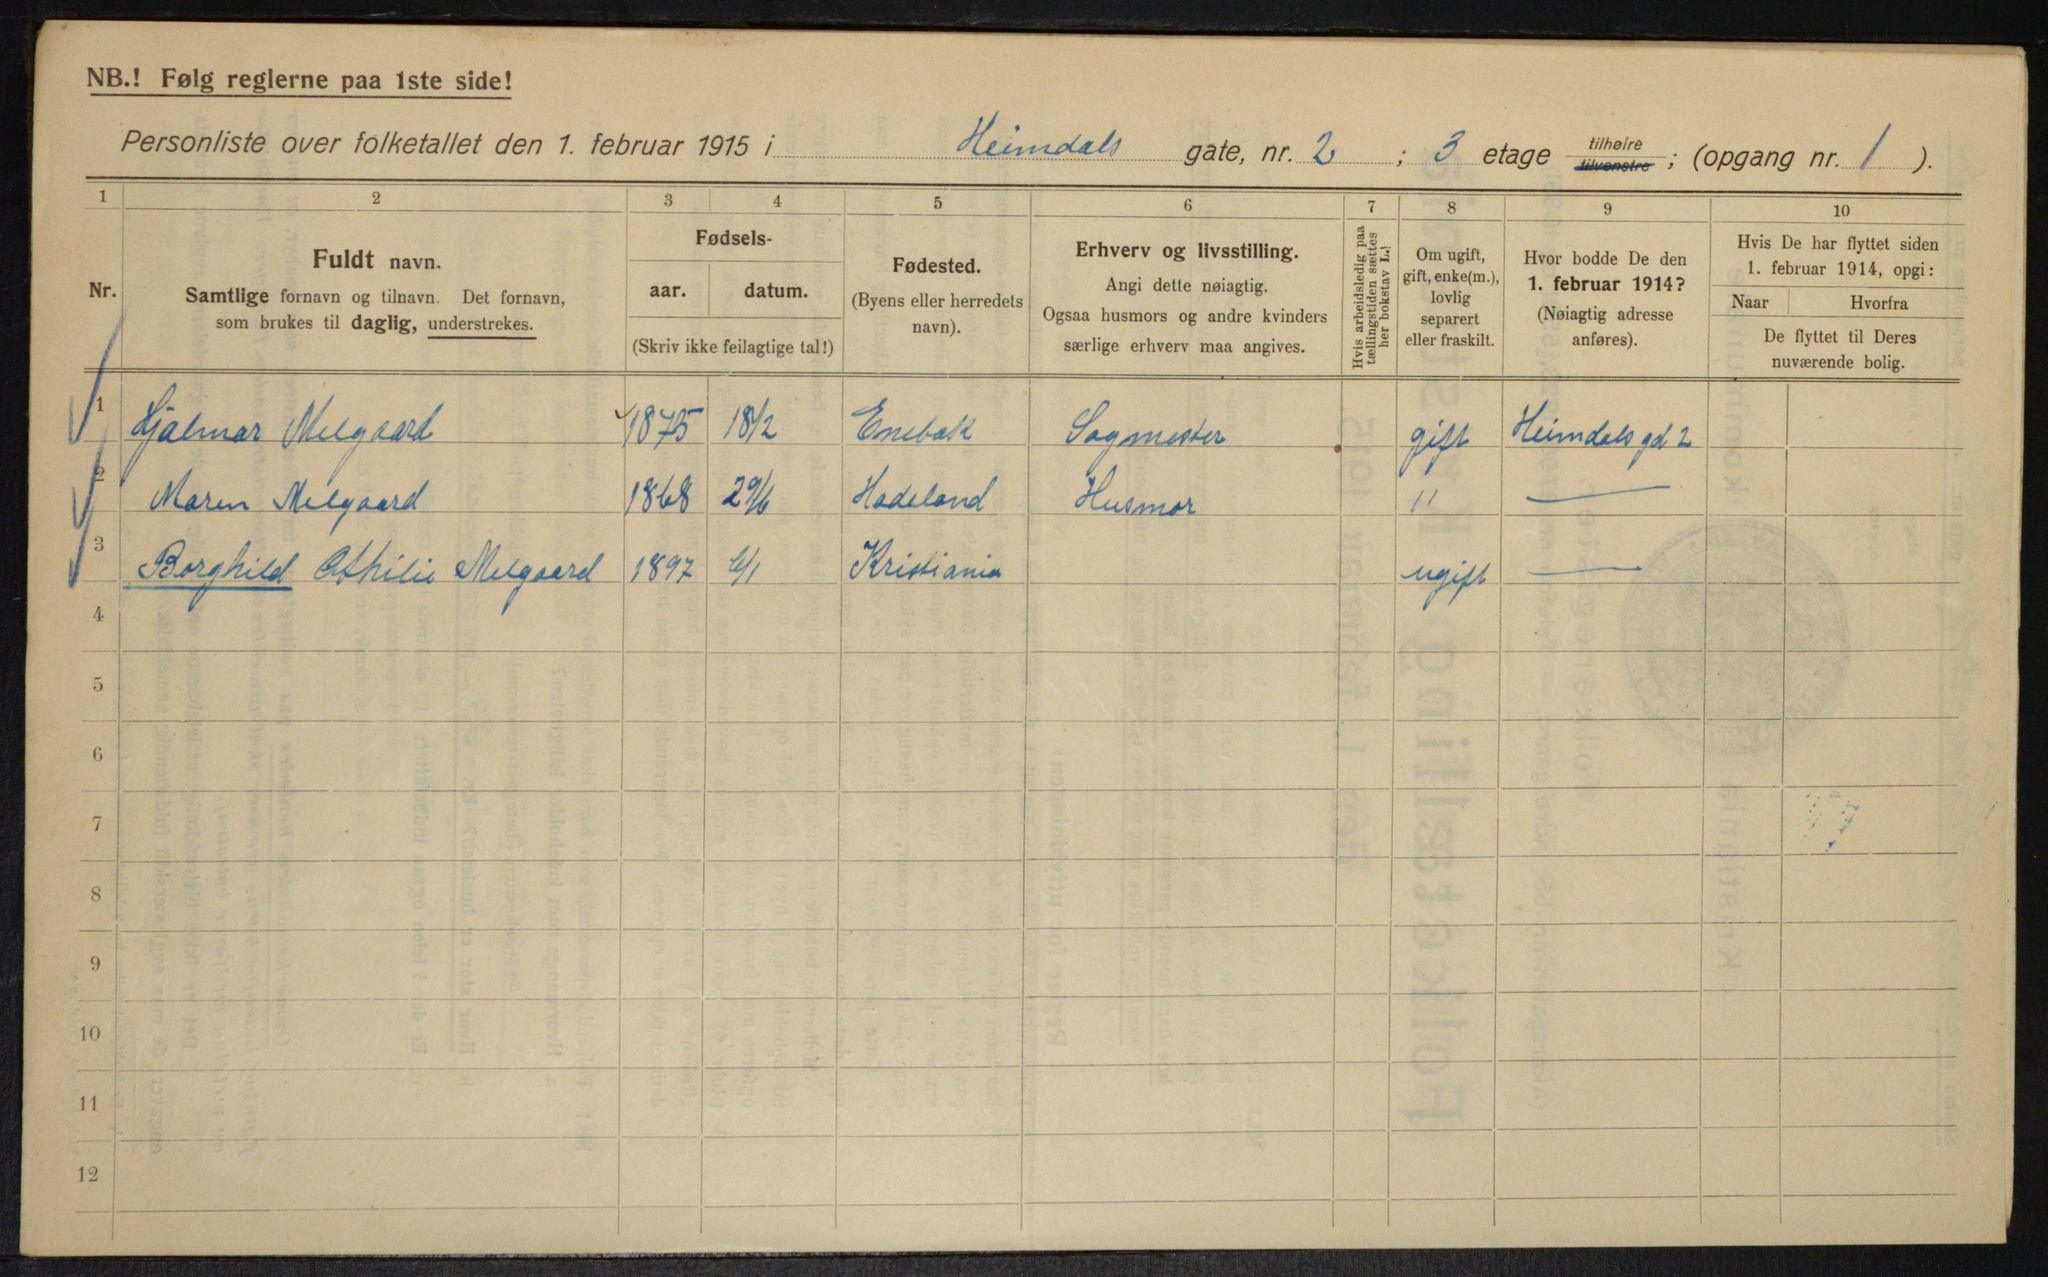 NB.! Følg reglerne paa 1ste side!
Personliste over folketallet den 1. februar 1915 i Heimdals gate, nr. 2 ; 3 etage tilhøire tilvenstre ; (opgang nr. 1 ).
1 2 3 4 5 6 7 8 9 10
Nr.
Fuldt navn.
Samtlige fornavn og tilnavn. Det fornavn,
som brukes til daglig, understrekes.
Fødsels-
aar. datum.
(Skriv ikke feilagtige tal!)
Fødested.
(Byens eller herredets
navn).
Erhverv og livsstilling.
Angi dette nøiagtig.
Ogsaa husmors og andre kvinders
særlige erhverv maa angives.
Hvis arbeidsledig paa
tællingstiden sættes
her bokstav L.!
Om ugift,
gift, enke(m.),
lovlig
separert
eller fraskilt.
Hvor bodde De den
1. februar 1914?
(Nøiagtig adresse
anføres).
Hvis De har flyttet siden
1. februar 1914, opgi:
Naar Hvorfra
De flyttet til Deres
nuværende bolig.
1 Hjalmar Melgaard 1875 18/2 Enebak Sagmester gift Heimdals gd 2
2 Maren Melgaard 1868 29/6 Hadeland Husmor " —
3 Borghild Athilie Melgaard 1897 6/1 Kristiania ugift —
4
5
6
7
8
9
10
11
12